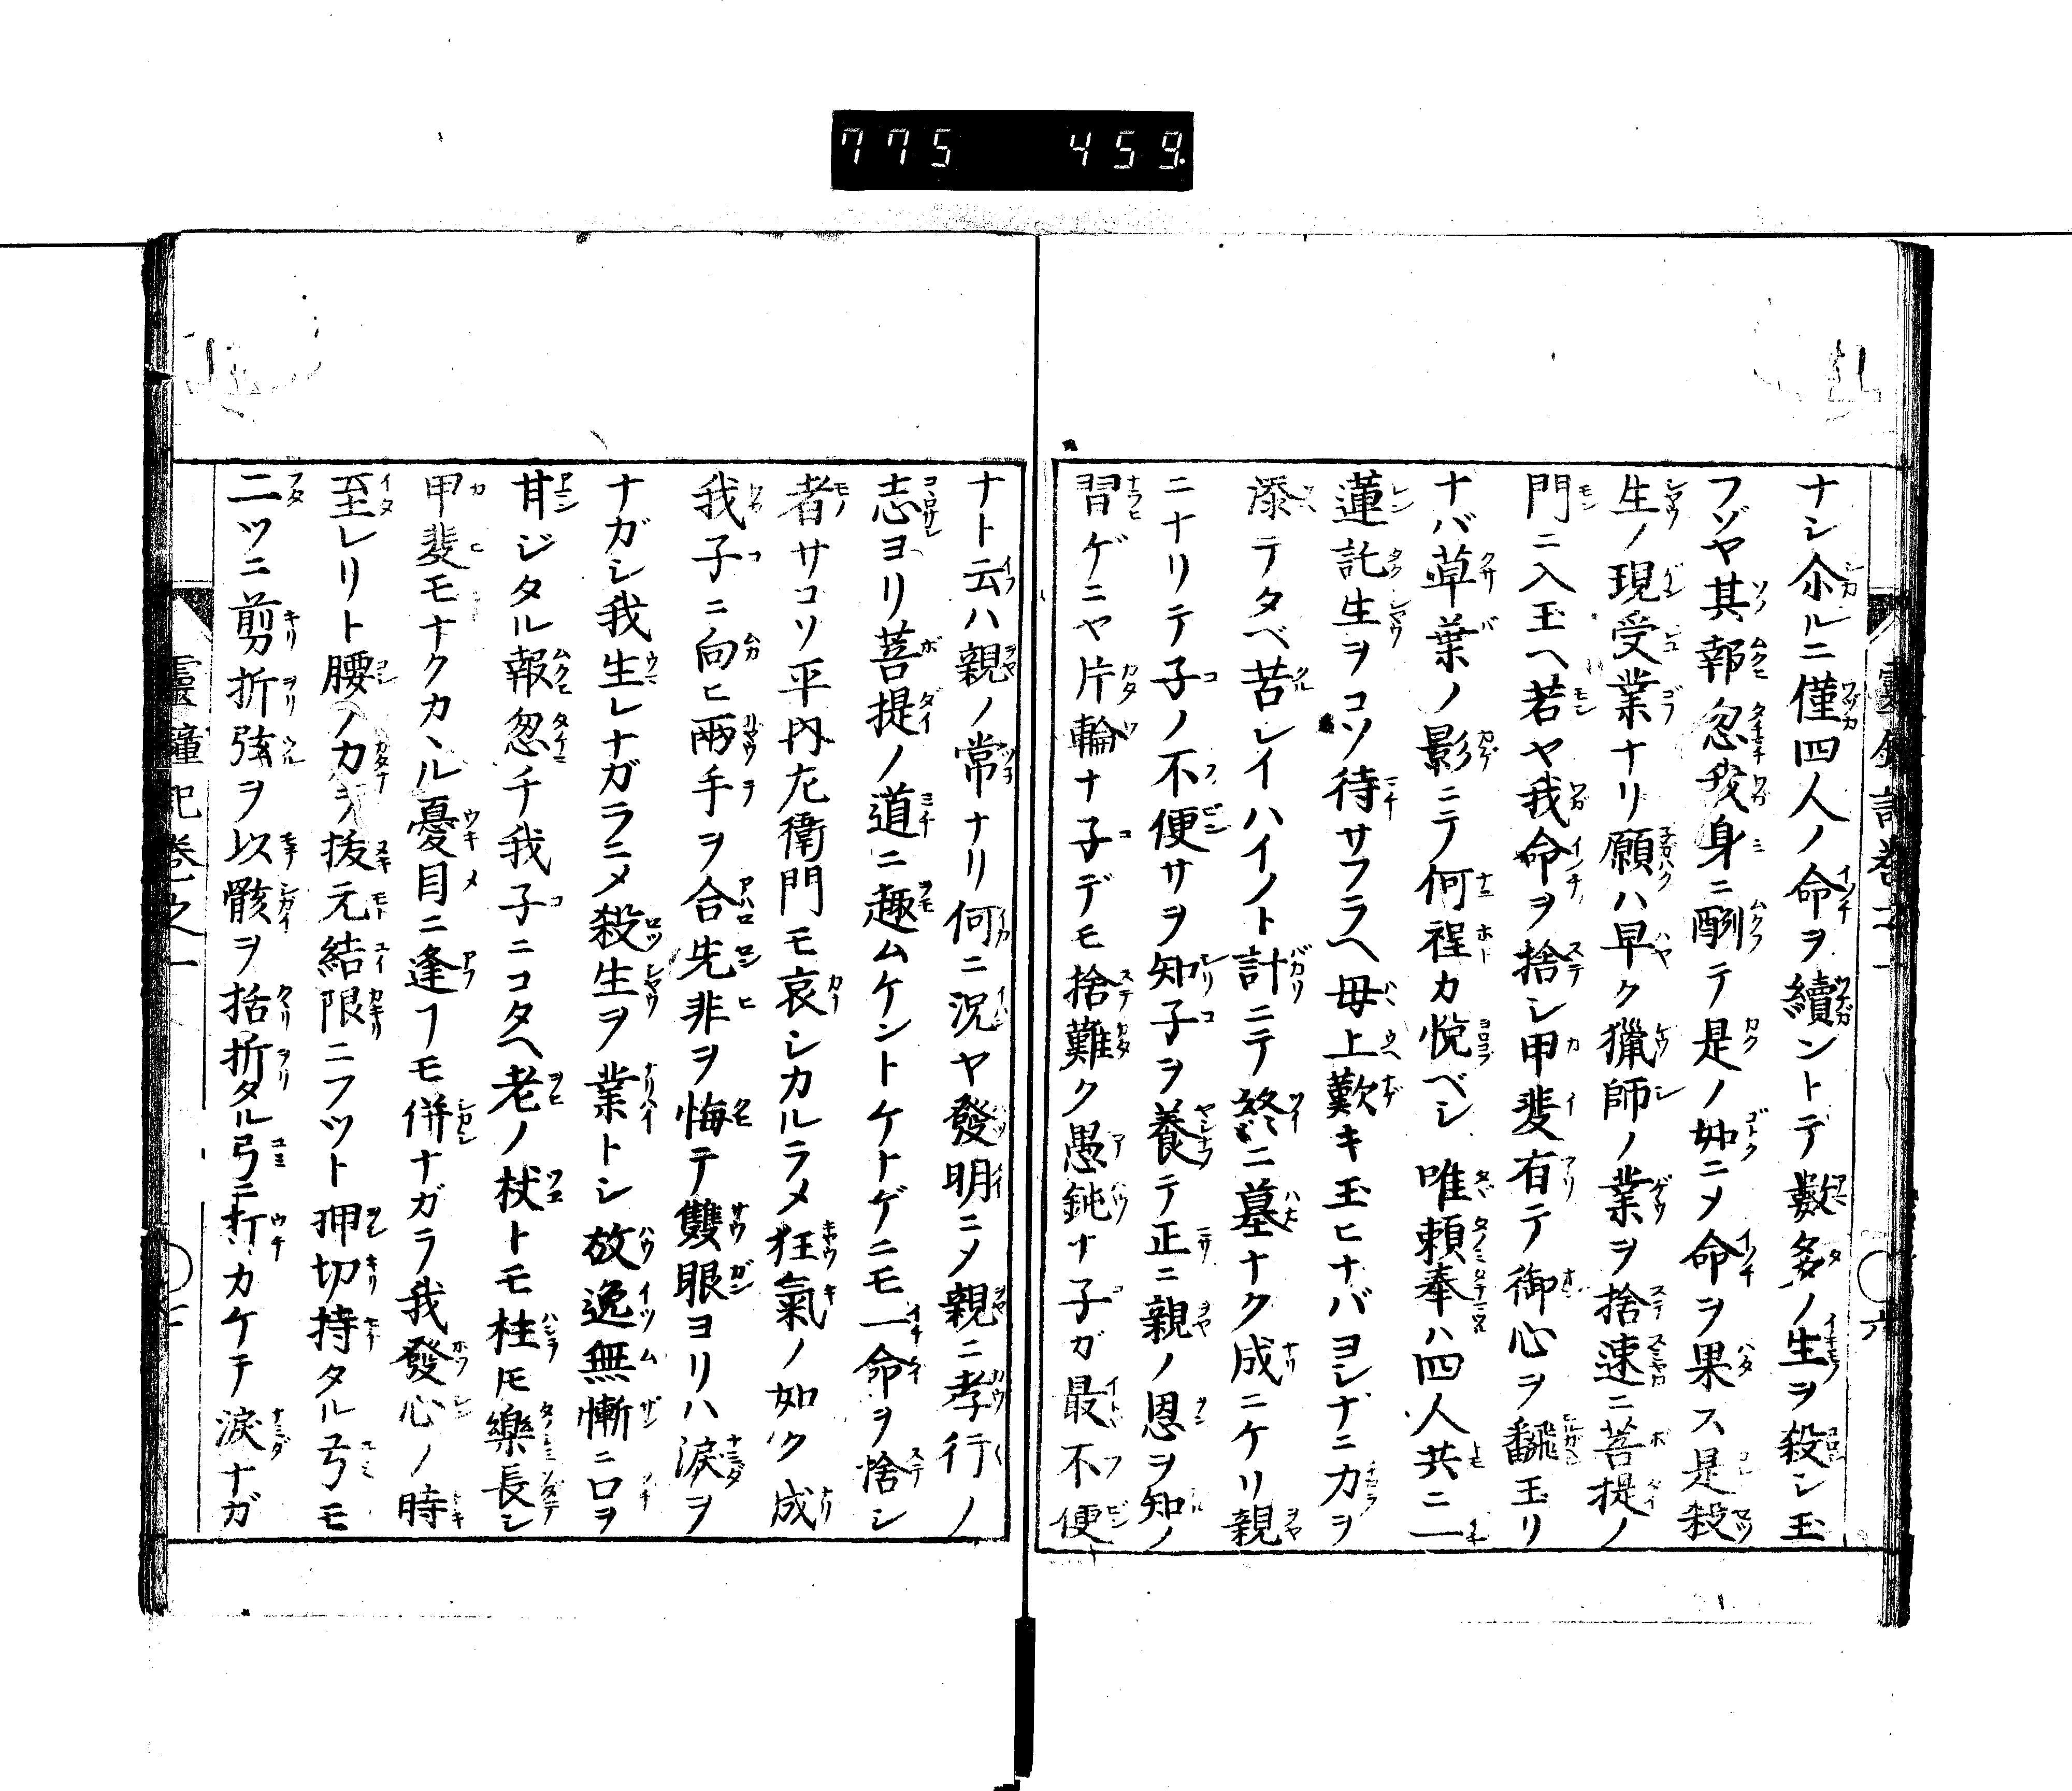 775 459
ナシ尒ルニ僅四人ノ命ヲ續ントテ數多ノ生ヲ殺シ玉
フゾヤ其報忽我身ニ酬テ是ノ如ニメ命ヲ果ス是殺
生ノ現受業ナリ願ハ早ク獵師ノ業ヲ捨速ニ菩提ノ
門ニ入玉ヘ若ヤ我命ヲ捨シ甲斐有テ御心ヲ飜玉リ
ナバ草葉ノ影ニテ何程カ悅ベシ唯頼奉ハ四人共ニ一
蓮託生ヲコソ待サフラヘ母上歎キ玉ヒナバヨシナニ力ヲ
添テタベ苦レイハイノト計ニテ終ニ墓ナク成ニケリ親
ニナリテ子ノ不便サヲ知子ヲ養テ正ニ親ノ恩ヲ知ノ
習ゲニヤ片輪ナ子デモ捨難ク愚鈍ナ子ガ最不便
ナト云ハ親ノ常ナリ何ニ況ヤ發明ニメ親ニ孝行ノ
志ヨリ菩提ノ道ニ趣ムケントケナゲニモ一命ヲ捨シ
者サコソ平内左衛門モ哀シカルラメ狂氣ノ如ク成
我子ニ向ヒ兩手ヲ合先非ヲ悔テ雙眼ヨリハ淚ヲ
ナガシ我生レナガラニメ殺生ヲ業トシ放逸無慚ニ口ヲ
甘ジタル報忽チ我子ニコタヘ老ノ杖トモ柱圧樂長シ
甲斐モナクカヽル憂目ニ逢フモ併ナガラ我發心ノ時
至レリト腰ノカタナヲ抜元結限ニフツト押切持タル弓モ
二ツニ剪折弦ヲ以骸ヲ括折タル弓ニ打カケテ淚ナガ
卷之一